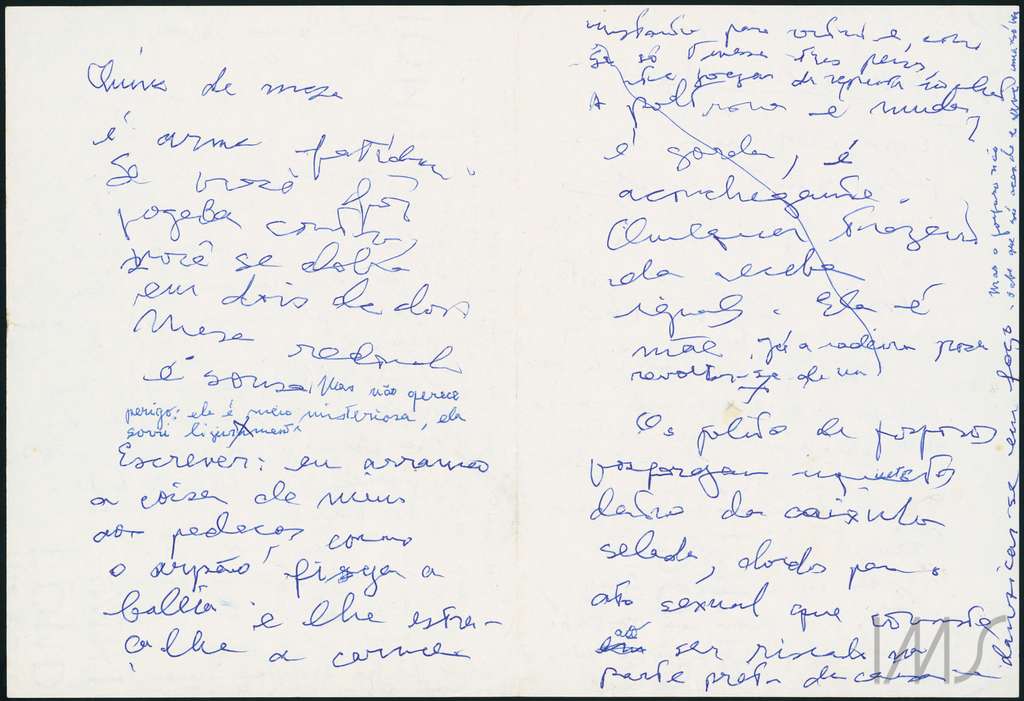 Quina de mesa
é arma fatídica.
Se você for
jogada contra,
você se dobra
em dois de dor.
Mesa redonda
é sonsa. Mas não oferece
perigo: ela é meio misteriosa, ela
sorri ligeiramente
Escrever: eu arranco
a coisa de mim
aos pedaços como
o arpão fisga a
baleia e lhe estra-
çalha a carne
para
Se só tivesse três pernas
de repente
A poltrona é muda,
é gorda, é
aconchegante.
Qualquer traseiro
ela recebe
igual. Ela é
mãe. Já a cadeira
revoltar-se de
Os palitos de fósforos
inquietos
dentro da caixinha
selada, doidos para o
ato sexual que consiste
ao
em ser riscado na
parte preta da caixa e
danificar-se em fogo.
Mas o fósforo não
sabe que só acende uma só vez
IMS